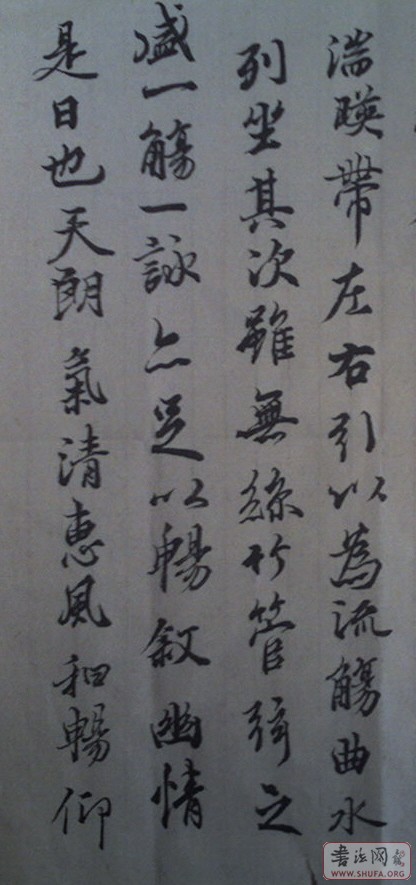 湍暎帶左右引以為流觴曲水
列坐其次雖無絲竹管弦之
盛一觴一詠亦足以暢敘幽情
是日也天朗氣清惠風和暢仰
書法网
WWW.SHUFA.ORG